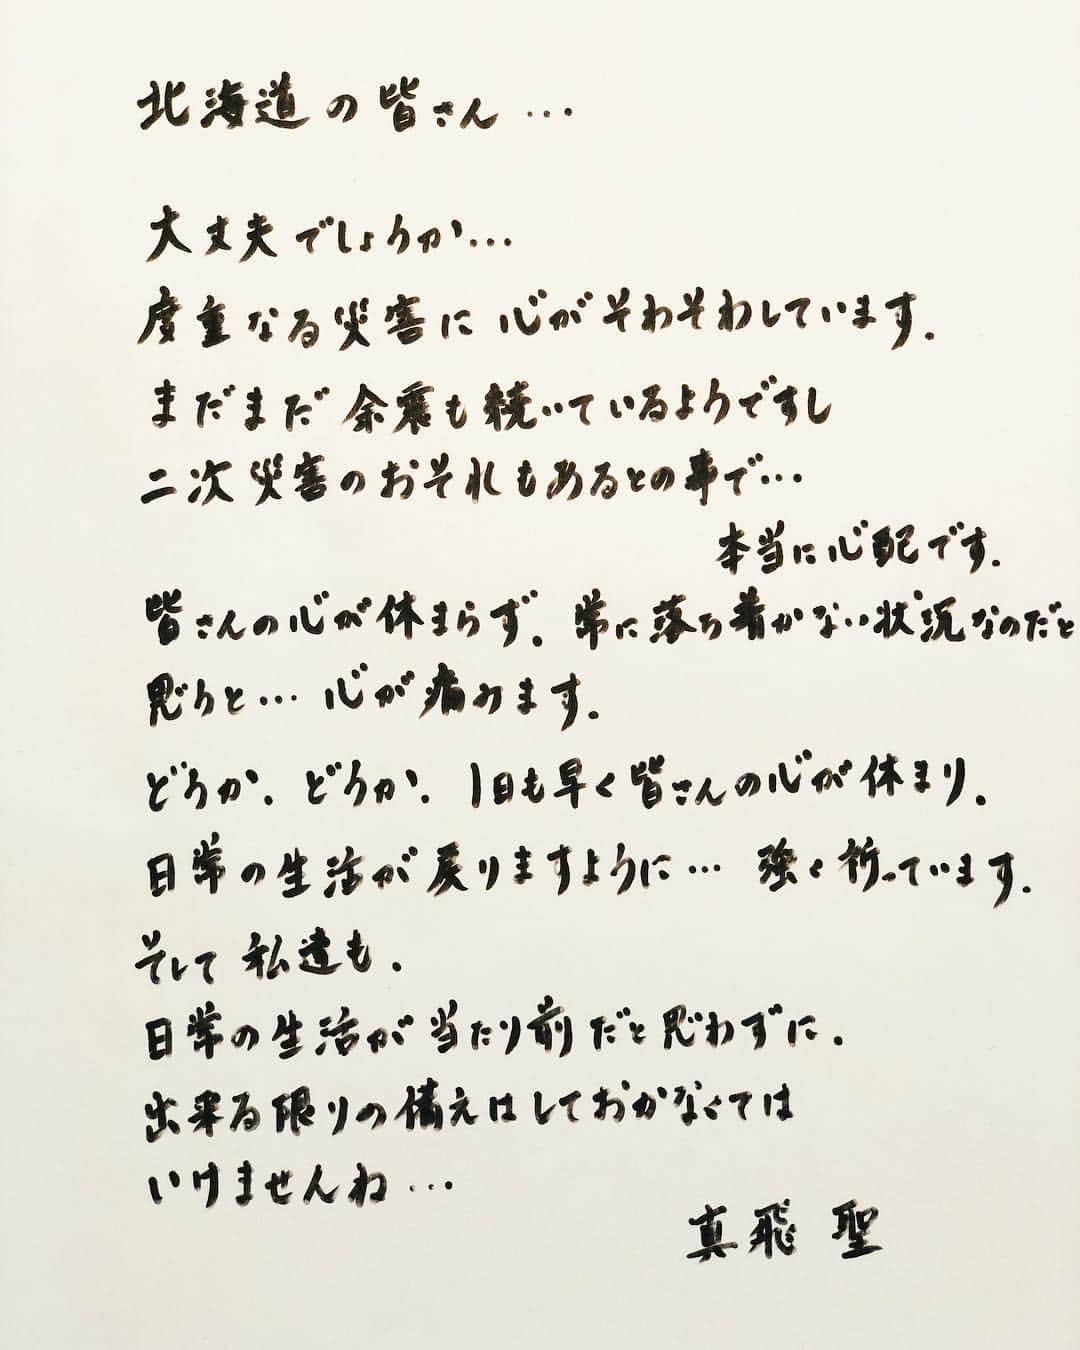 北海道の皆さん…
大丈夫でしょうか…
度重なる災害に心がそわそわしています.
まだまだ余震も続いているようですし
二次災害のおそれもあるとの事で…
本当に心配です.
皆さんの心が休まらず. 常に落ち着かない状況なのだと
思うと… 心が痛みます.
どうか. どうか. 1日も早く皆さんの心が休まり.
日常の生活が戻りますように… 強く祈っています.
そして私達も.
日常の生活が当たり前だと思わずに.
出来る限りの備えはしておかなくては
いけませんね…
真飛 聖